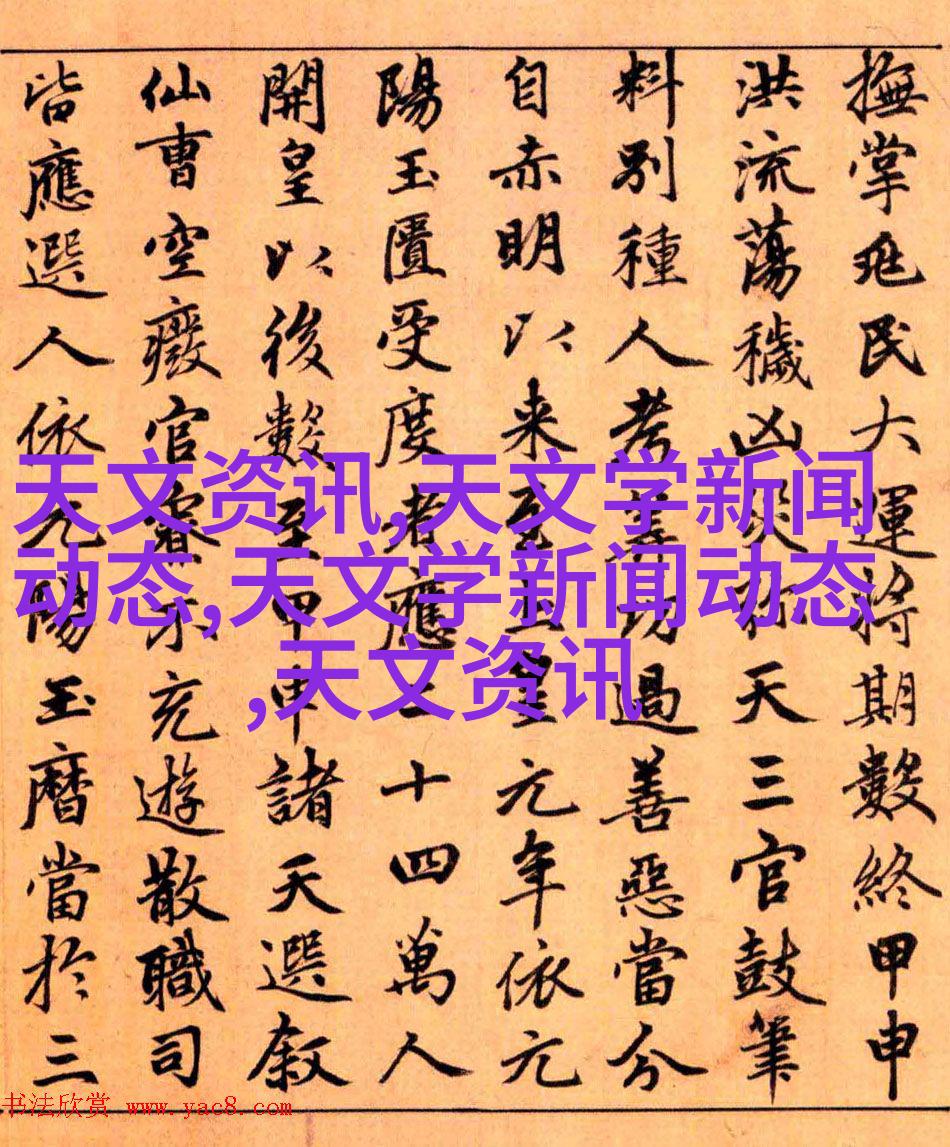 撫掌兆民大運將期數終甲申
洪流蕩穢凶災彌天三官鼓筆
料別種人考筭功過善惡當分
自赤明以来至上皇元年依元
陽玉匱受度者應二十四萬人
開皇以後數至甲申諸天選敘
仙曹空廢官寮不充遊散職司
皆應選人依元陽玉曆當於三
天文资讯,天文学新闻
动态,天文学新闻动态
,天文资讯
书法欣赏 www.yac8.com